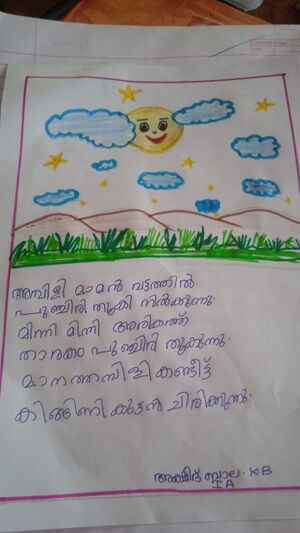 അമ്പിളി മാമൻ വട്ടത്തിൽ
പുഞ്ചിരി തൂകി നിൽക്കുന്നു.
മിന്നി മിന്നി അരികത്ത്
താരകം പുഞ്ചിരി തൂകുന്നു.
മാനത്തമ്പിളികണ്ടിട്ട്
കിങ്ങിണികുട്ടൻ ചിരിക്കുന്നു.
ബാല. K.B
I A